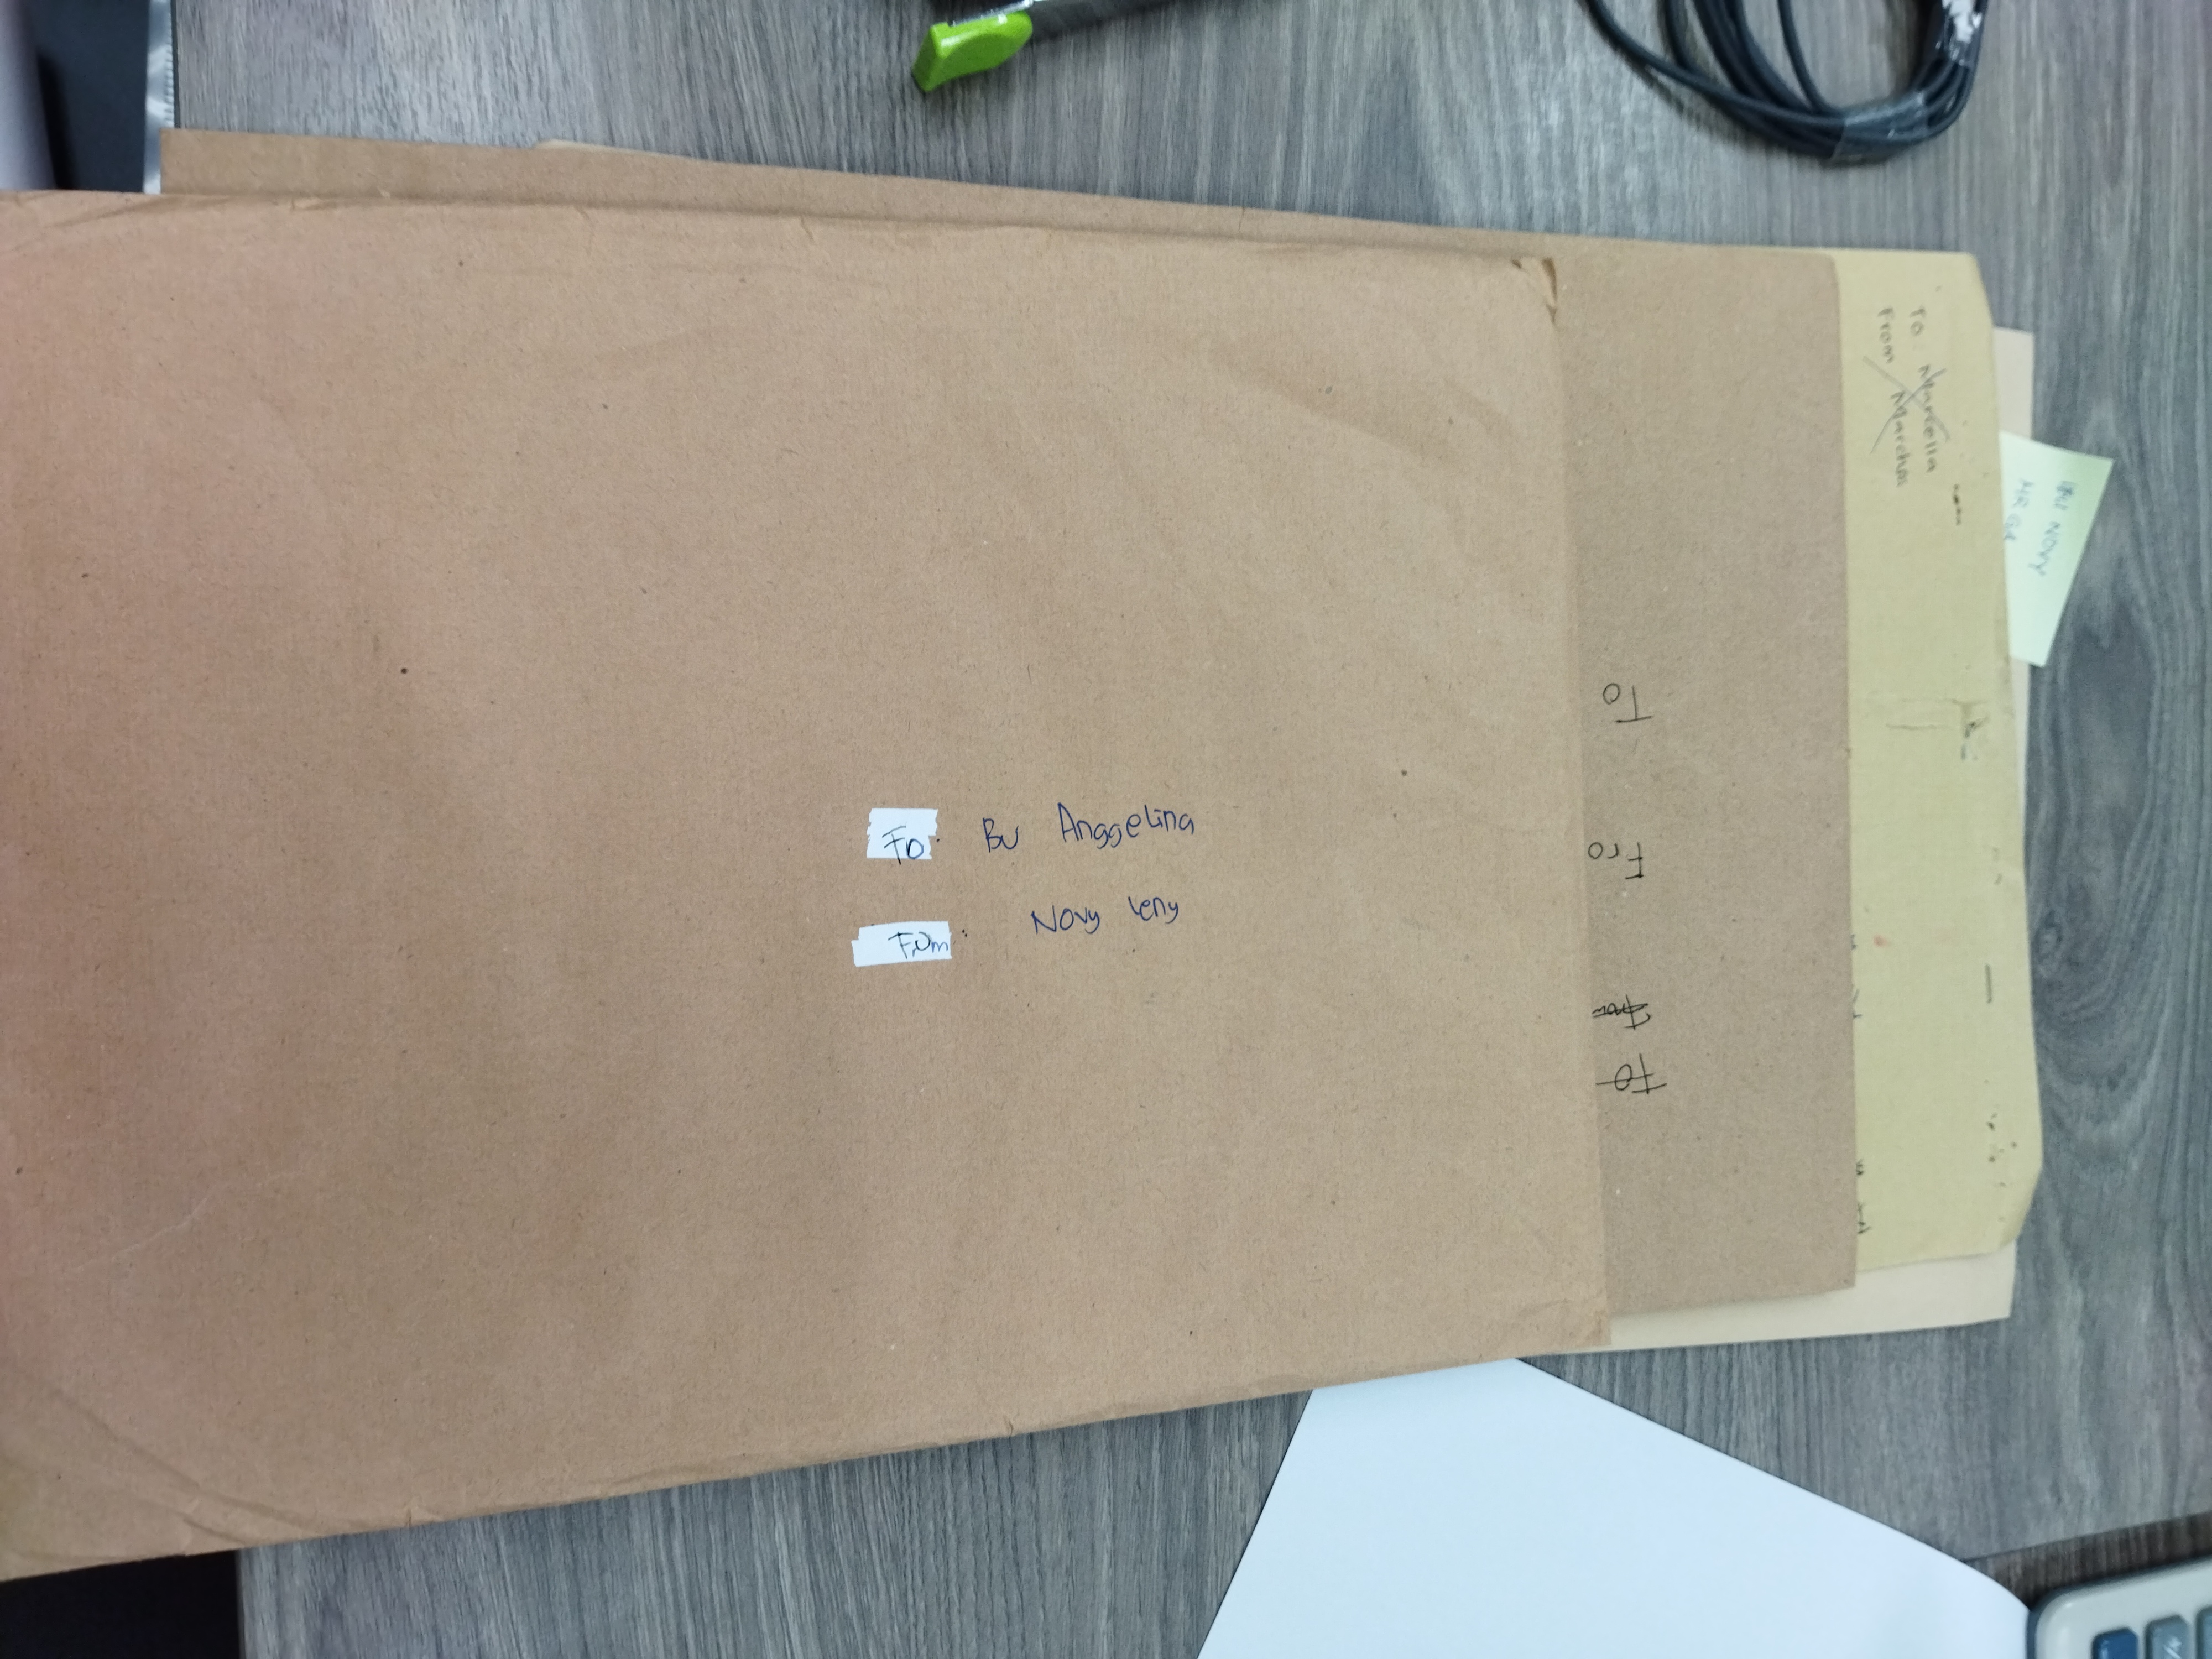 To : Bu Anggelina
From : Novy Leny
To
Fro
From
To
To Marcella
From Marcha
IBU NOVY
HR GA